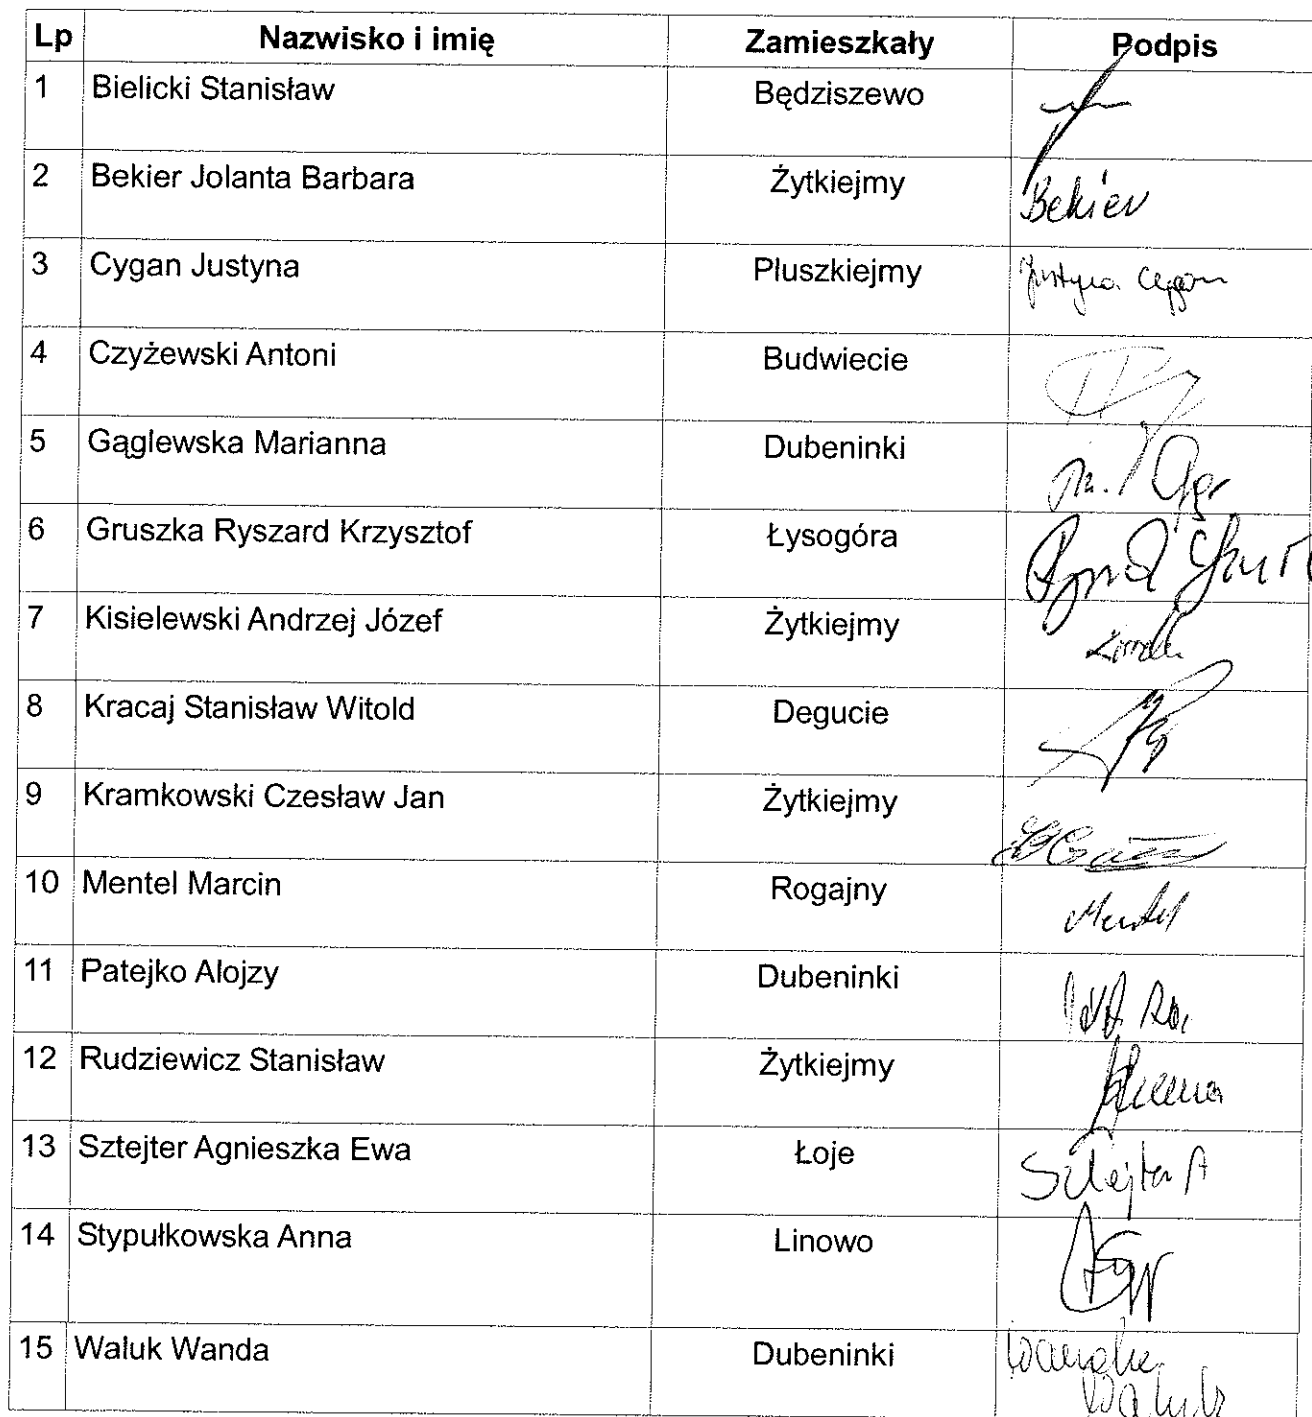 Lp Nazwisko i imię Zamieszkały Podpis
1 Bielicki Stanisław Będziszewo
2 Bekier Jolanta Barbara Żytkiejmy Bekier
3 Cygan Justyna Pluszkiejmy Justyna Cygan
4 Czyżewski Antoni Budwiecie
5 Gąglewska Marianna Dubeninki
6 Gruszka Ryszard Krzysztof Łysogóra
7 Kisielewski Andrzej Józef Żytkiejmy
8 Kracaj Stanisław Witold Degucie
9 Kramkowski Czesław Jan Żytkiejmy
10 Mentel Marcin Rogajny Mentel
11 Patejko Alojzy Dubeninki
12 Rudziewicz Stanisław Żytkiejmy
13 Sztejter Agnieszka Ewa Łoje Sztejter A
14 Stypułkowska Anna Linowo
15 Waluk Wanda Dubeninki Wanda
Waluk